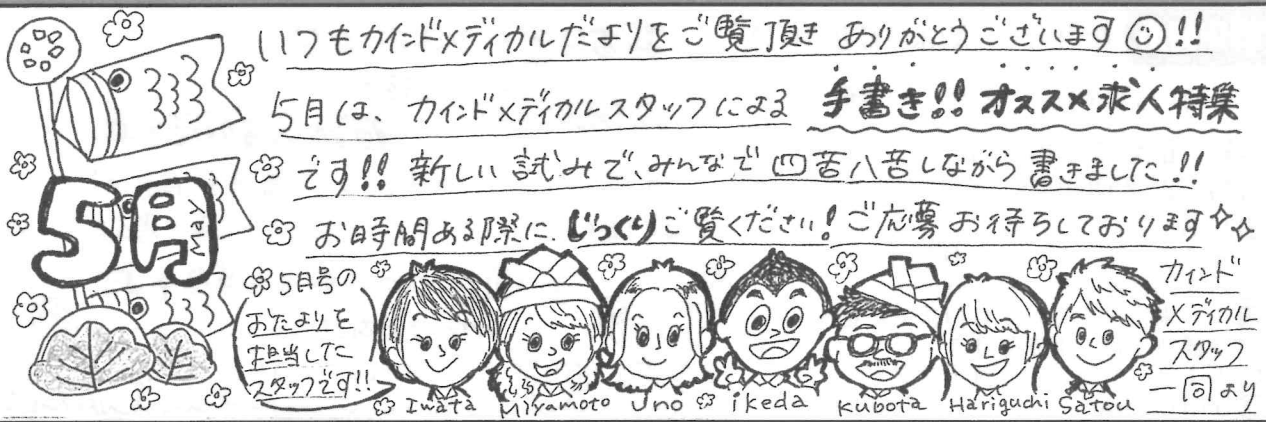 いつもカインドメディカルだよりをご覧頂き ありがとうございます!!
5月は、カインドメディカルスタッフによる 手書き!! オススメ求人特集
です!! 新しい試みで、みんなで四苦八苦しながら書きました!!
お時間ある際に じっくりご覧ください! ご応募お待ちしております
5月
MAY
5月号の
おたよりを
担当した
スタッフです!!
Iwata Miyamoto Uno ikeda Kubota Hariguchi Satou
カインド
メディカル
スタッフ
一同より